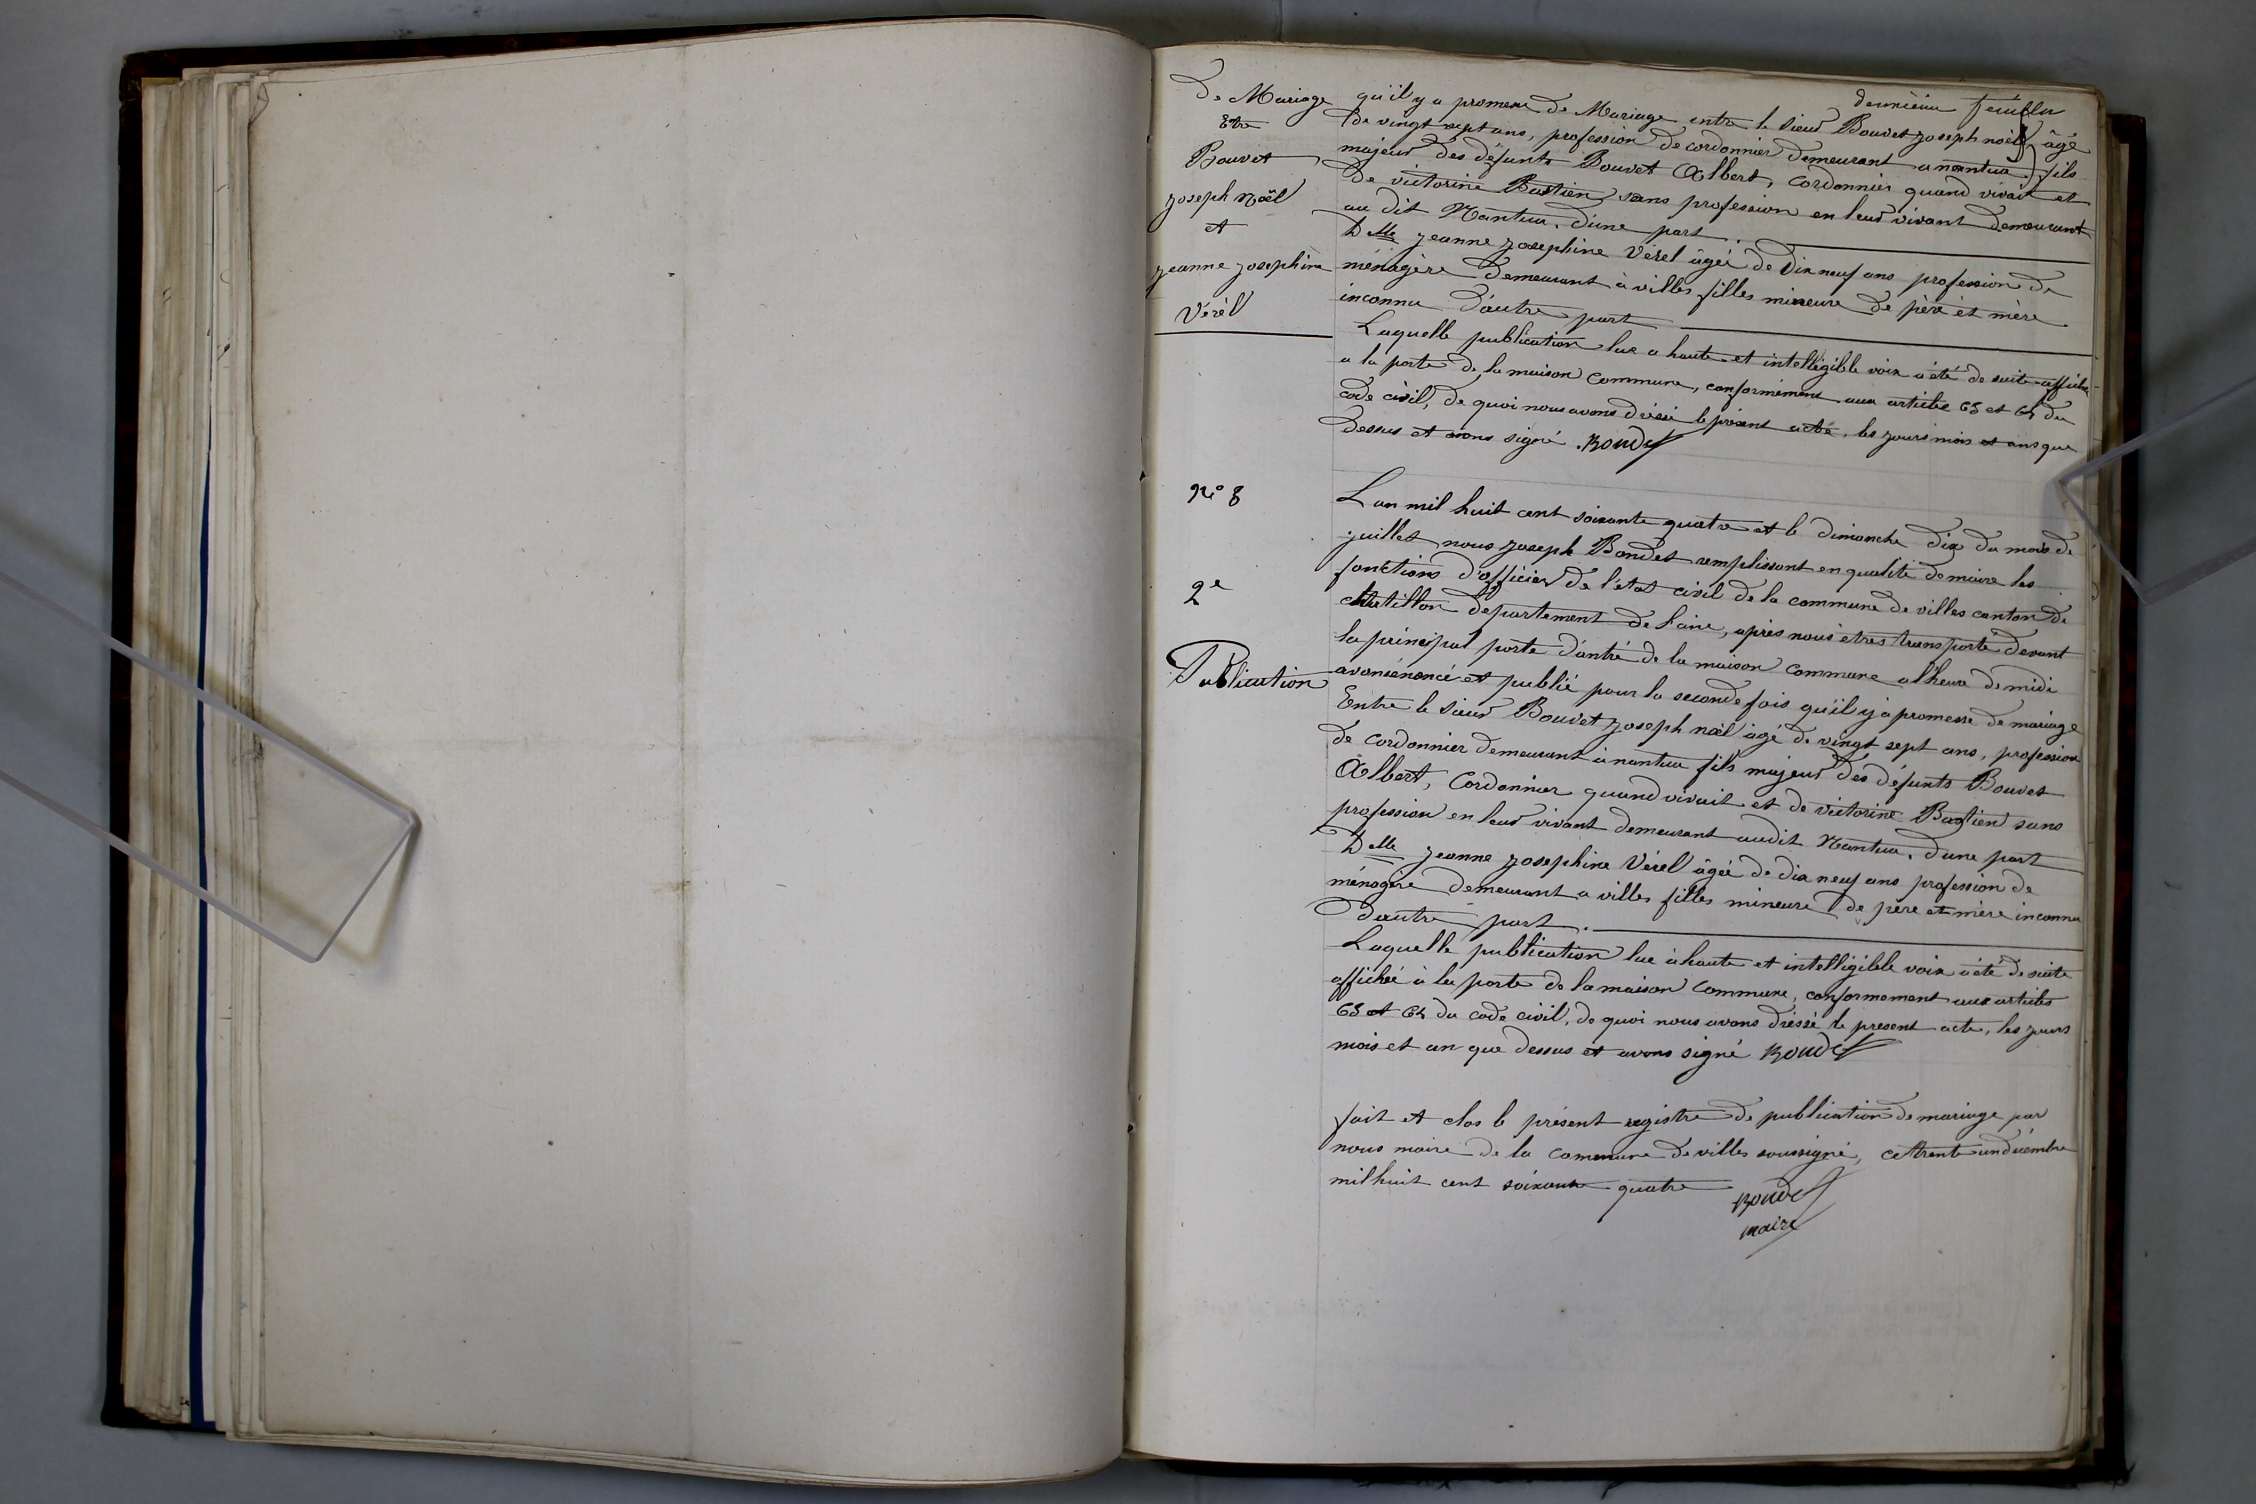 dernièiu feuillu
de Mariage
Etre
Bouvet
joseph noël
et
jeanne josephine
Vérel
qu'il y a promesse de Mariage entre le sieur Bouvet joseph noël âgé
de vingt sept ans, profession de cordonnier demeurant a nantua fils
majeur des défunts Bouvet Albert, cordonnier quand vivait et
de victorine Bastien sans profession en leur vivant demeurant
au dit Nantua. d'une part.
Delle jeanne josephine Vérel âgée de dix neuf ans profession de
ménagère demeurant à villes filles mineure de père et mère
inconnu d'autre part
Laquelle publication lue a haute et intelligible voix a été de suite affiche
a la porte de la maison commune, conformément aux articles 63 et 64 du
code civil, de quoi nous avons dréssé le présent acte, les jours mois et ans que
dessus et avons signé. Bondet
N° 8
2e
Publication
L an mil huit cent soixante quatre et le dimanche dix du mois de
juillet nous joseph Bondet remplissant en qualité de maire les
fonctions d'officier de l'état civil de la commune de villes canton de
chatillon département de l'ain, après nous êtres transporté devant
la principal porte d'antré de la maison commune a l'heure de midi
avons énoncé et publié pour la seconde fois qu'il y a promesse de mariage
Entre le sieur Bouvet joseph noël âgé de vingt sept ans, profession
de cordonnier demeurant à nantua fils majeur des défunts Bouvet
Albert, Cordonnier quand vivait et de victorine Bastien sans
profession en leur vivant demeurant audit Nantua. d'une part
Delle jeanne josephine Vérel âgée de dix neuf ans profession de
ménagère demeurant a villes filles mineure de père et mère inconnu
d'autre part.
Laquelle publication lue à haute et intelligible voix a été de suite
affichée à la porte de la maison commune, conformement aux articles
63 et 64 du code civil, de quoi nous avons dréssé le present acte, les jours
mois et an que dessus et avons signé Bondet
fait et clos le présent registre de publication de mariage par
nous maire de la commune de villes soussigné, ce trente un décembre
mil huit cent soixante quatre
Bondet
maire